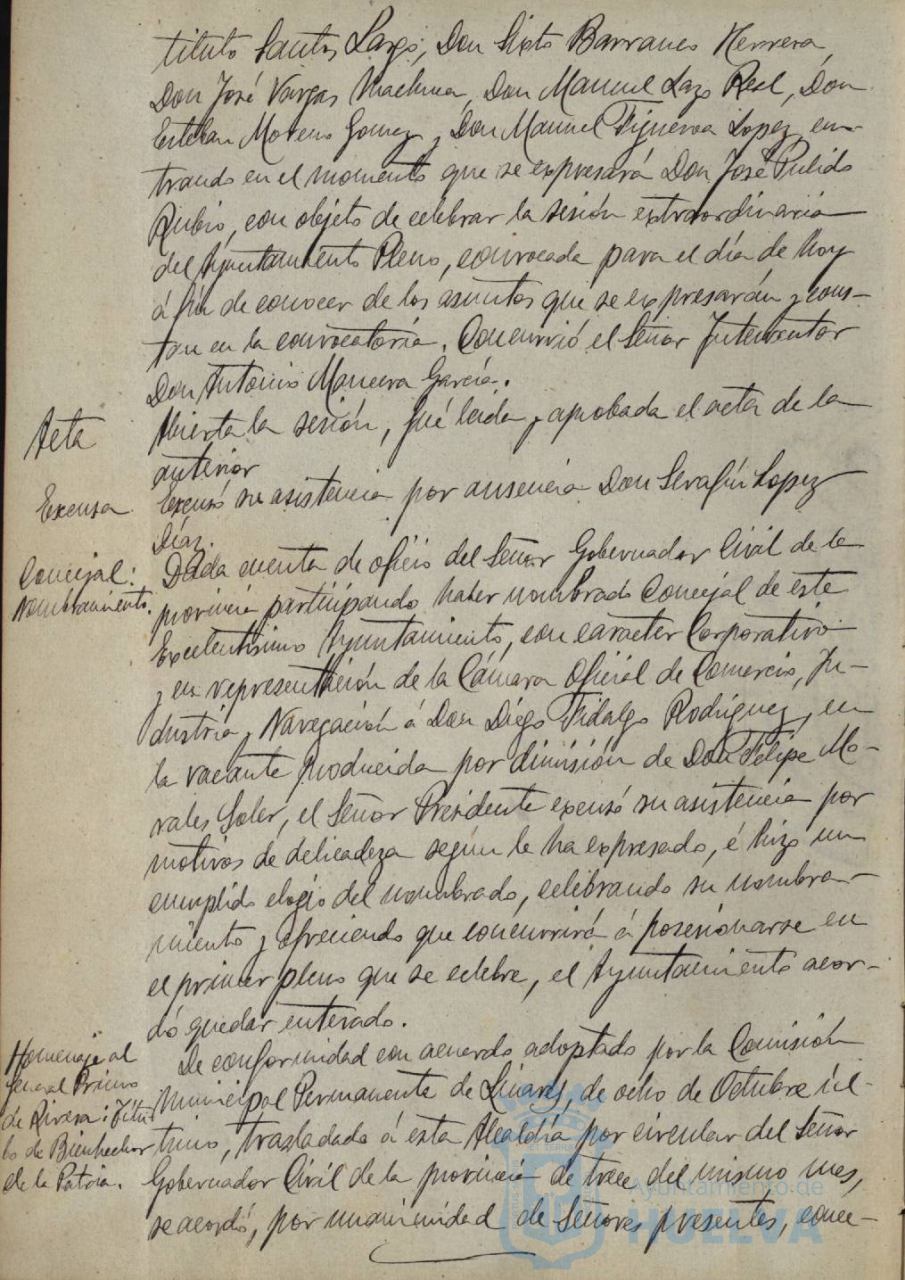 tituto Santos Lazo, Don Sixto Barranco Herrera,
Don José Vargas Machuca, Don Manuel Lazo Real, Don
Esteban Moreno Gomez y Don Manuel Figueroa Lopez, en-
trando en el momento que se expresará Don José Pulido
Rubio, con objeto de celebrar la sesión extraordinaria
del Ayuntamiento Pleno, convocada para el día de hoy
á fin de conocer de los asuntos que se expresarán y cons-
tan en la convocatoria. Concurrió el Señor Interventor
Don Antonio Mancera García.
Acta
Abierta la sesión, fué leida y aprobada el acta de la
anterior
Excusa
Excusó su asistencia por ausencia Don Serafín Lopez
Díaz.
Concejal:
Nombramiento.
Dada cuenta de oficio del Señor Gobernador Civil de la
provincia participando haber nombrado Concejal de este
Excelentísimo Ayuntamiento, con caracter Corporativo
y en representación de la Cámara Oficial de Comercio, In-
dustria y Navegación á Don Diego Fidalgo Rodríguez, en
la vacante producida por dimisión de Don Felipe Mo-
rales Soler, el Señor Presidente excusó su asistencia por
motivos de delicadeza según le ha expresado, é hizo un
cumplido elogio del nombrado, celebrando su nombra-
miento y ofreciendo que concurrirá á posesionarse en
el primer pleno que se celebre, el Ayuntamiento acor-
dó quedar enterado.
Homenaje al
General Primo
de Rivera: Títu-
lo de Bienhechor
de la Patria.
De conformidad con acuerdo adoptado por la Comisión
Municipal Permanente de Linares, de ocho de Octubre úl-
timo, trasladado á esta Alcaldía por circular del Señor
Gobernador Civil de la provincia de trece del mismo mes,
se acordó, por unanimidad de Señores presentes, conce-
Ayuntamiento de
HUELVA